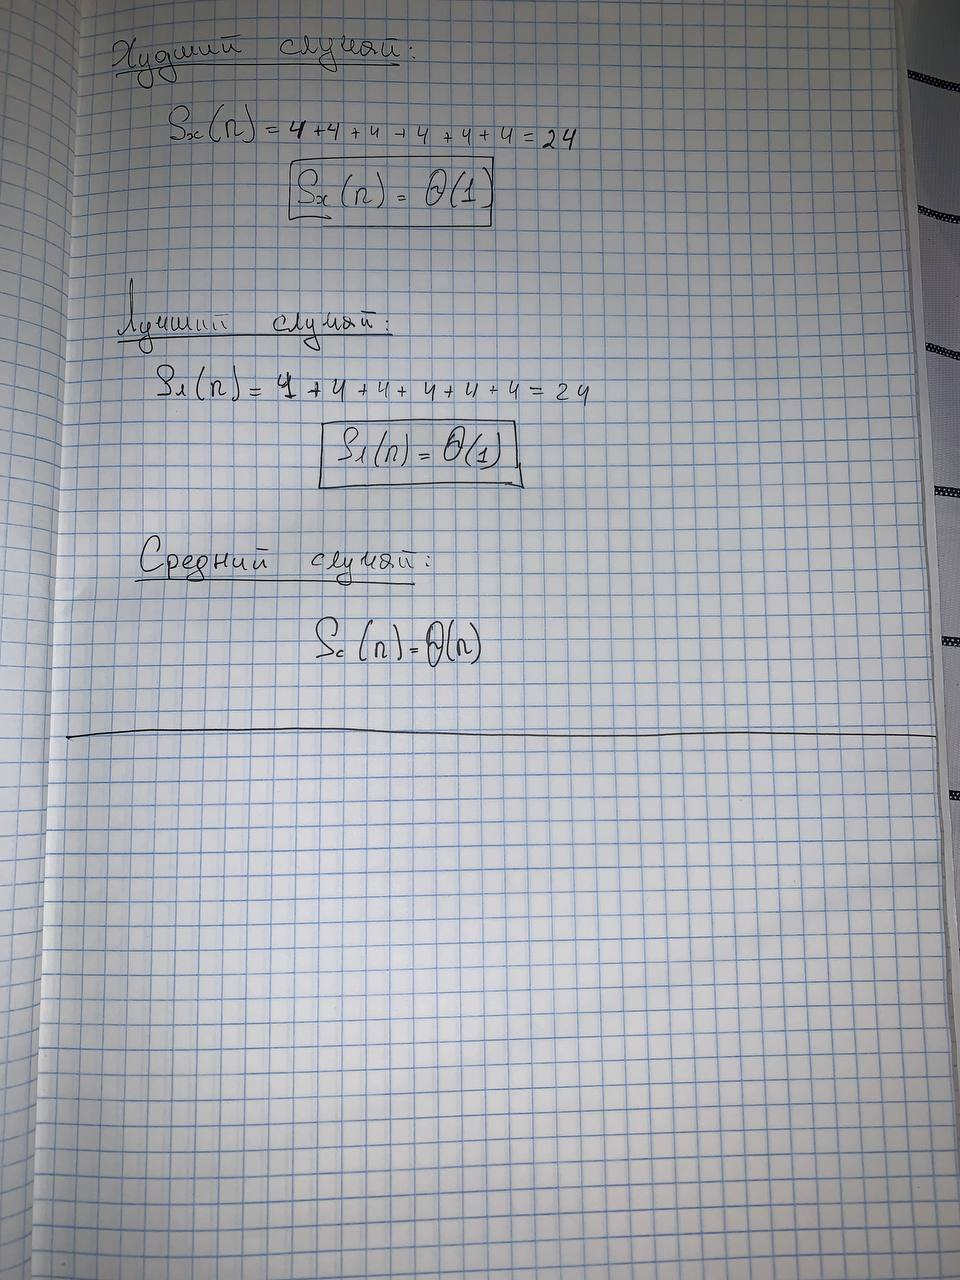 Худший случай:
Sх(n) = 4 + 4 + 4 + 4 + 4 + 4 = 24
Sх(n) = Θ(1)
Лучший случай:
Sл(n) = 4 + 4 + 4 + 4 + 4 + 4 = 24
Sл(n) = Θ(1)
Средний случай:
Sс(n) = Θ(n)